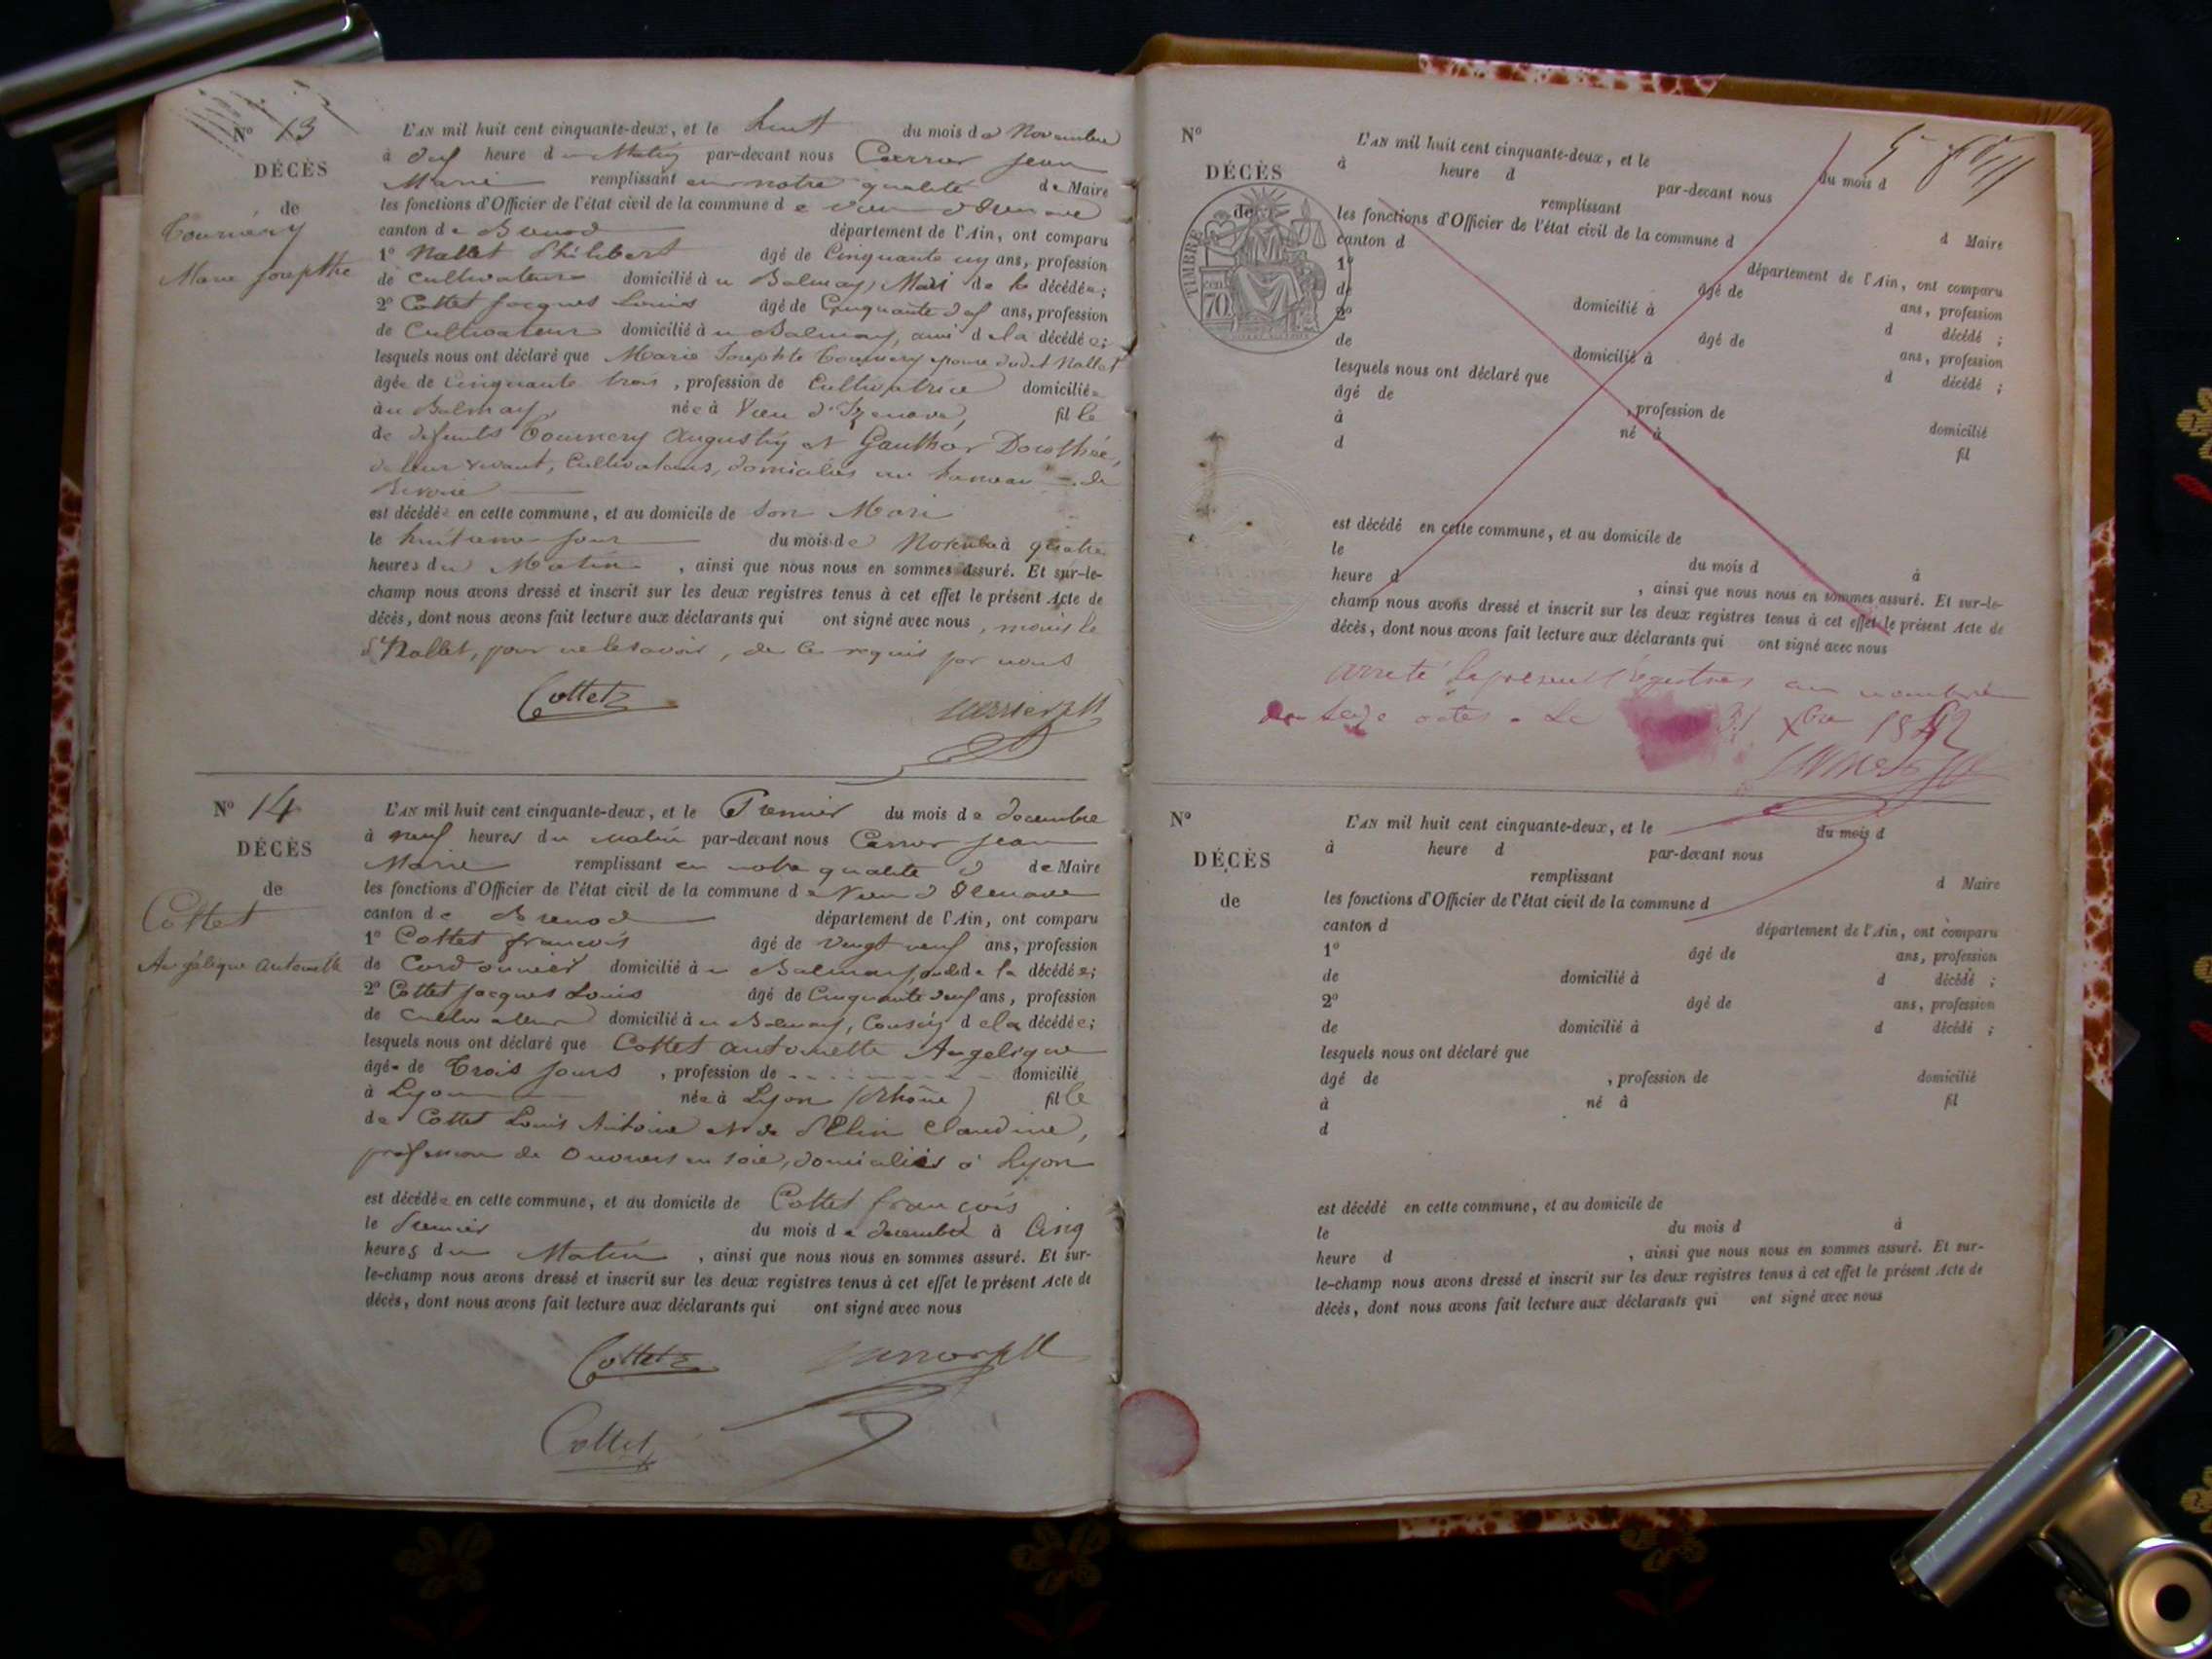 N° 13
DÉCÈS
de
Tournéry
Marie Josephte
L'AN mil huit cent cinquante-deux, et le huit du mois de Novembre
à dix heure du Matin par-devant nous Carrier Jean
Marie remplissant en notre qualité de Maire
les fonctions d'Officier de l'état civil de la commune de Vieu d'Izenave
canton de Brenod département de l'Ain, ont comparu
1° Nallet Philibert âgé de Cinquante un ans, profession
de Cultivateur domicilié à u Balmay, Mari de la décédée;
2° Cottet Jacques Louis âgé de Cinquante ans, profession
de Cultivateur domicilié à u Balmay, ami de la décédée;
lesquels nous ont déclaré que Marie Josephte Tournery épouse dudit Nallet
âgée de Cinquante trois, profession de Cultivatrice domiciliée
au Balmay, née à Vieu d'Izenave, fille
de défunts Tournery Augustin et Gauthier Dorothée,
de leur vivant, Cultivateurs, domiciliés au hameau de
est décédée en cette commune, et au domicile de Son Mari
le huitième jour du mois de Novembre à quatre
heures du Matin, ainsi que nous nous en sommes assuré. Et sur-le-
champ nous avons dressé et inscrit sur les deux registres tenus à cet effet le présent Acte de
décès, dont nous avons fait lecture aux déclarants qui ont signé avec nous, mais le
d. Nallet, pour ne le savoir, de ce requis par nous
Cottet
N° 14
DÉCÈS
de
Cottet
Angélique Antoinette
L'AN mil huit cent cinquante-deux, et le Premier du mois de décembre
à neuf heures du matin par-devant nous Carrier Jean
Marie remplissant en notre qualité de Maire
les fonctions d'Officier de l'état civil de la commune de Vieu d'Izenave
canton de Brenod département de l'Ain, ont comparu
1° Cottet françois âgé de Vingt neuf ans, profession
de Cordonnier domicilié à u Balmay, de la décédée;
2° Cottet Jacques Louis âgé de Cinquante ans, profession
de Cultivateur domicilié à u Balmay, Cousin de la décédée;
lesquels nous ont déclaré que Cottet Antoinette Angelique
âgée de Trois jours, profession de domicilié
à Lyon née à Lyon (Rhône) fille
de Cottet Louis Antoine et de Claudine,
profession de Ouvriers en soie, domiciliés à Lyon
est décédée en cette commune, et au domicile de Cottet françois
le Premier du mois de décembre à Cinq
heures du Matin, ainsi que nous nous en sommes assuré. Et sur-
le-champ nous avons dressé et inscrit sur les deux registres tenus à cet effet le présent Acte de
décès, dont nous avons fait lecture aux déclarants qui ont signé avec nous
Cottet
Cottet
N°
DÉCÈS
de
TIMBRE
70
L'AN mil huit cent cinquante-deux, et le du mois d
à heure d par-devant nous
remplissant d Maire
les fonctions d'Officier de l'état civil de la commune d
canton d département de l'Ain, ont comparu
1° âgé de ans, profession
de domicilié à d décédé ;
2° âgé de ans, profession
de domicilié à d décédé ;
lesquels nous ont déclaré que
âgé de , profession de domicilié
à né à fil
d
est décédé en cette commune, et au domicile de
le du mois d à
heure d , ainsi que nous nous en sommes assuré. Et sur-le-
champ nous avons dressé et inscrit sur les deux registres tenus à cet effet le présent Acte de
décès, dont nous avons fait lecture aux déclarants qui ont signé avec nous
Arrêté le présent registre au nombre
actes Le 31 Xbre 1852
N°
DÉCÈS
de
L'AN mil huit cent cinquante-deux, et le du mois d
à heure d par-devant nous
remplissant d Maire
les fonctions d'Officier de l'état civil de la commune d
canton d département de l'Ain, ont comparu
1° âgé de ans, profession
de domicilié à d décédé ;
2° âgé de ans, profession
de domicilié à d décédé ;
lesquels nous ont déclaré que
âgé de , profession de domicilié
à né à fil
d
est décédé en cette commune, et au domicile de
le du mois d à
heure d , ainsi que nous nous en sommes assuré. Et sur-
le-champ nous avons dressé et inscrit sur les deux registres tenus à cet effet le présent Acte de
décès, dont nous avons fait lecture aux déclarants qui ont signé avec nous